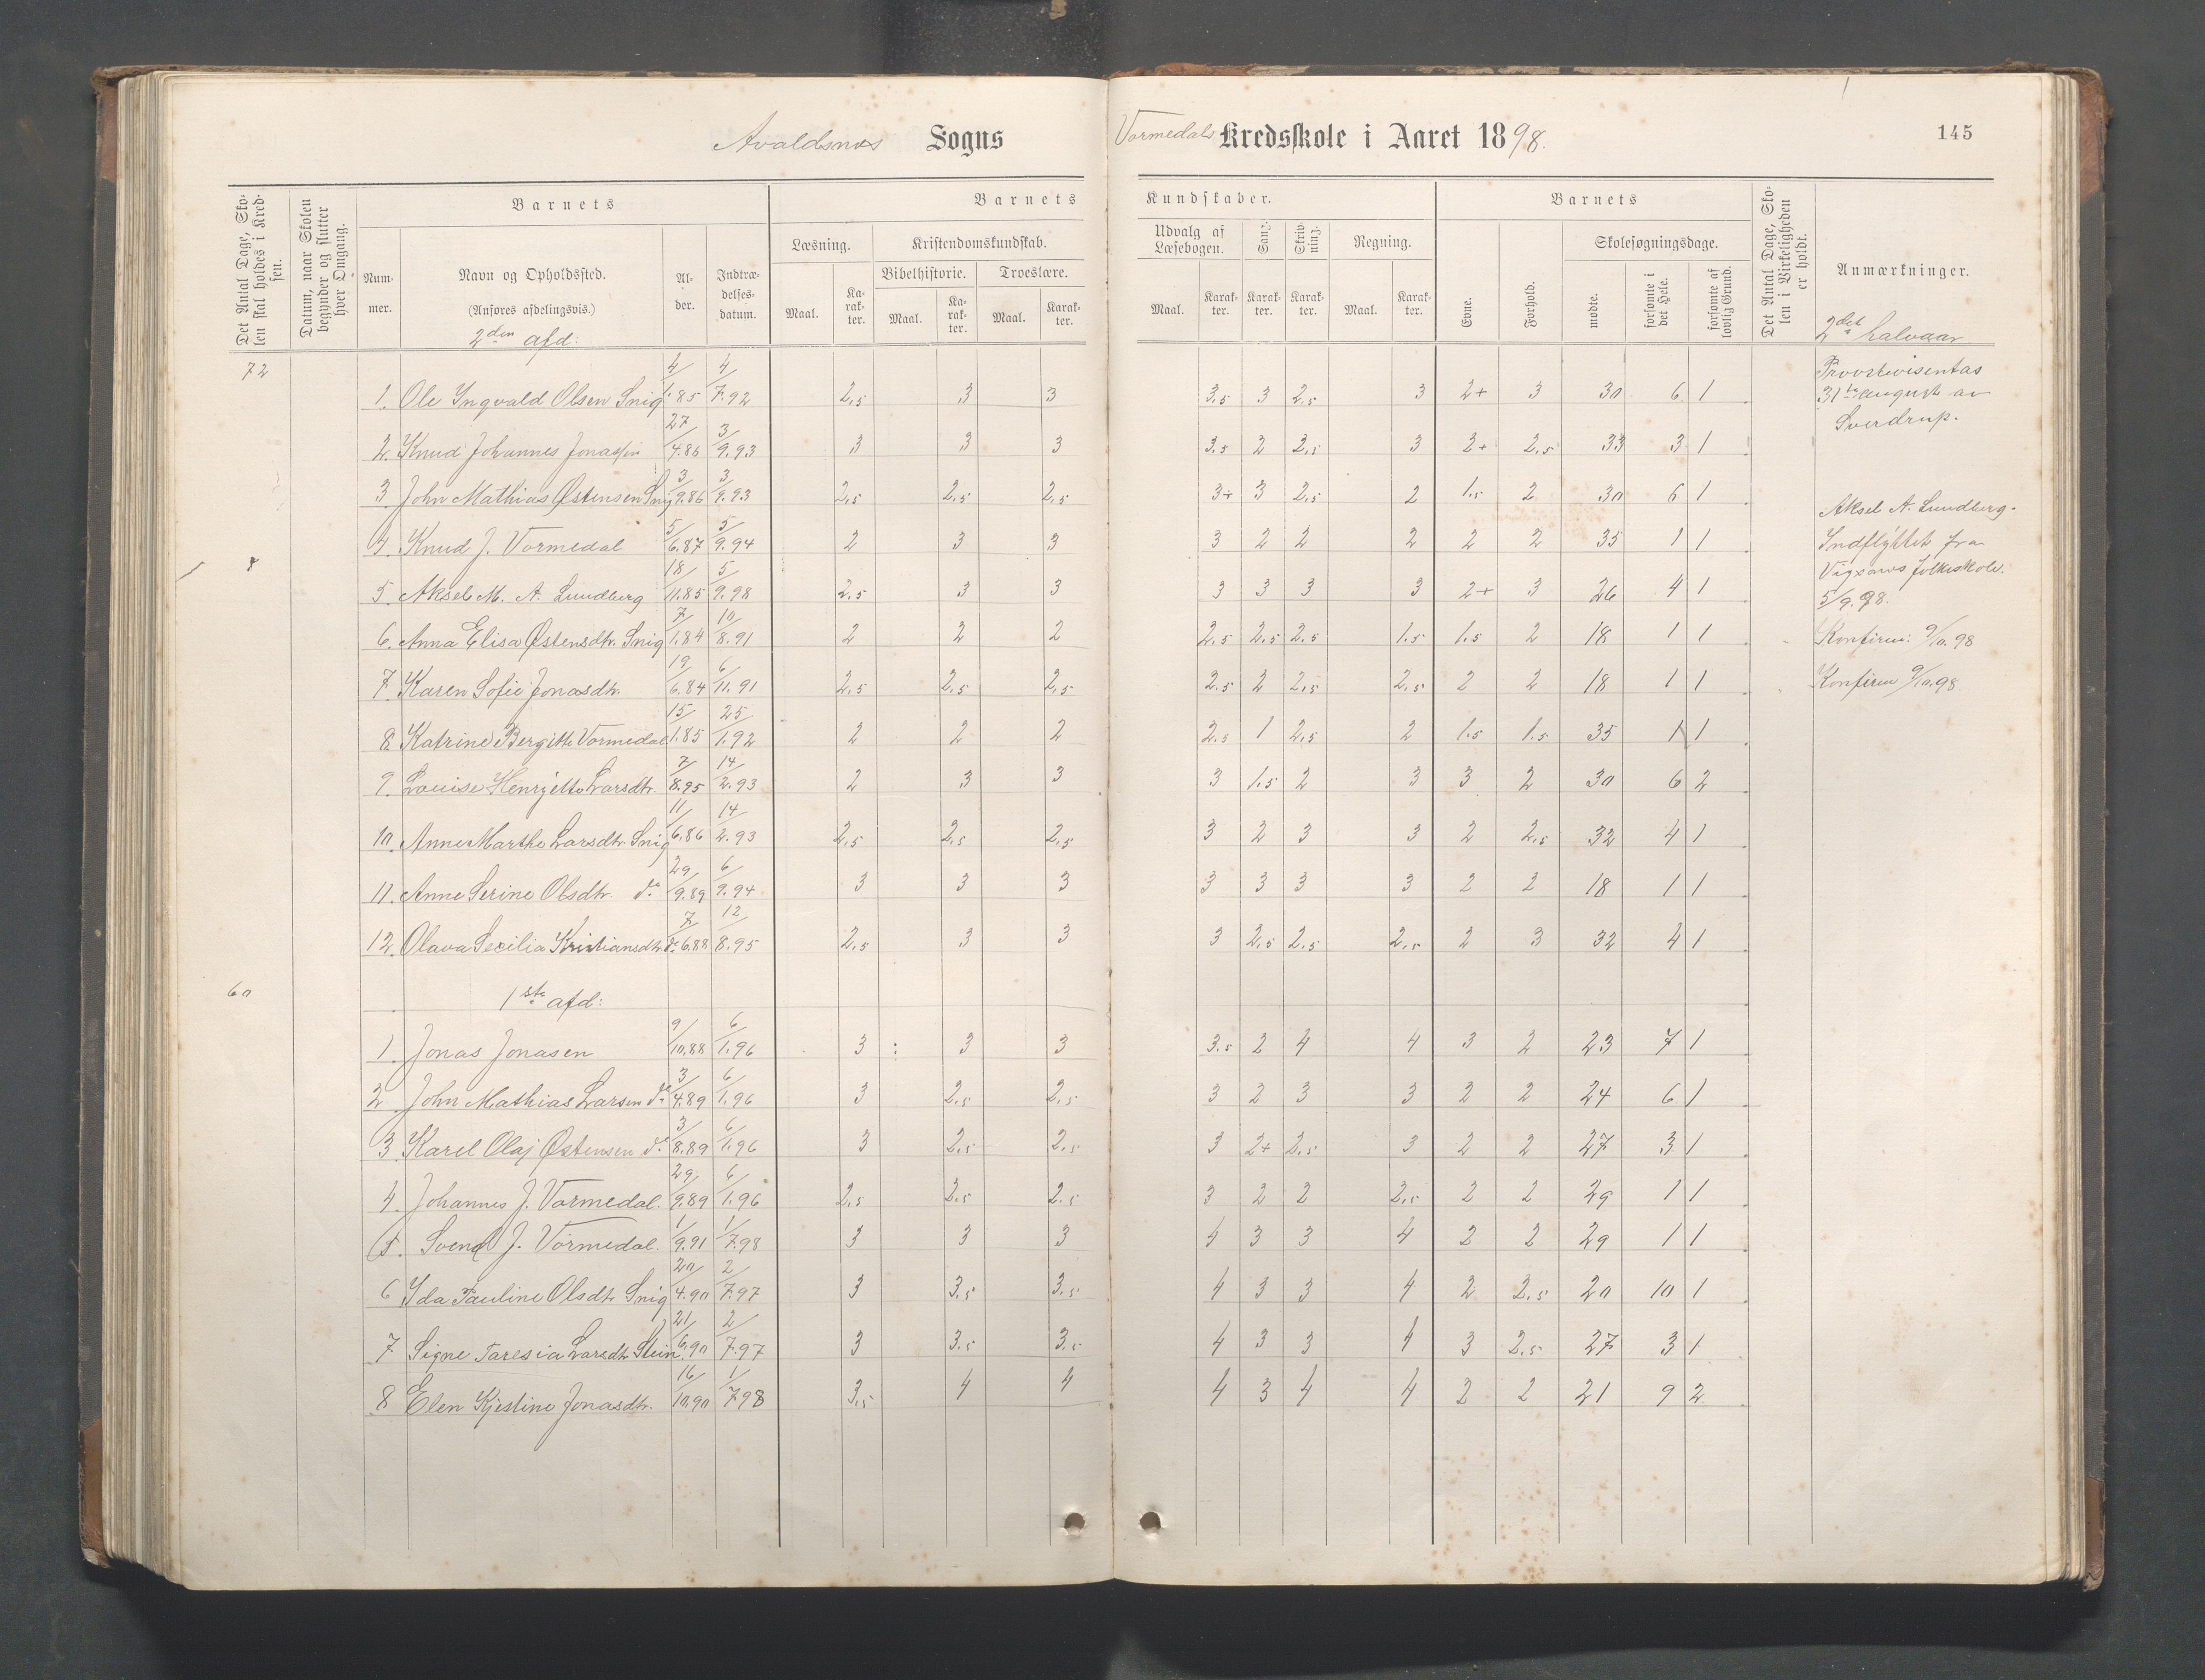 Avaldsnes Sogns Vormedals Kredsskole i Aaret 1898. 145
Det Antal Dage, Skolen skal holdes i Kredsen.
Datum, naar Skolen begynder og slutter hver Omgang.
Barnets
Nummer.
Navn og Opholdssted.
(Anføres afdelingsvis.)
2den afd:
Alder.
Indtrædelsesdatum.
Barnets Kundskaber.
Læsning. Kristendomskundskab.
Bibelhistorie. Troeslære.
Maal. Karakter. Maal. Karakter. Maal. Karakter.
Udvalg af Læsebogen. Sang. Skrivning. Regning.
Maal. Karakter. Karakter. Karakter. Maal. Karakter.
Barnets
Evne. Forhold. Skolesøgningsdage.
mødte. forsømte i det Hele. forsømte af lovlig Grund.
Det Antal Dage, Skolen i Virkeligheden er holdt.
Anmærkninger.
2det halvaar
72
1. Ole Yngvald Olsen Snig 4/1.85 4/7.92 2,5 3 3 3.5 3 2,5 3 2+ 3 30 6 1
2. Knud Johannes Jonassen 27/4.86 3/9.93 3 3 3 3.5 2 2,5 3 2+ 2.5 33 3 1
3 John Mathias Østensen Snig 3/9.86 3/9.93 2,5 2,5 2,5 3+ 3 2,5 2 1.5 2 30 6 1
4. Knud J. Vormedal 5/6.87 5/9.94 2 3 3 3 2 2 2 2 2 35 1 1
8
5. Aksel M. A. Lundberg 18/11.85 5/9.98 2,5 3 3 3 3 3 3 2+ 3 26 4 1
6. Anna Elisa Østensdtr. Snig 7/1.84 10/8.91 2 2 2 2.5 2,5 2,5 1.5 1.5 2 18 1 1
7. Karen Sofie Jonasdtr. 19/6.84 6/11.91 2,5 2,5 2,5 2.5 2 2,5 2,5 2 2 18 1 1
8 Katrine Bergitte Vormedal 15/1.85 25/1.92 2 2 2 2.5 1 2,5 2 1.5 1.5 35 1 1
9. Louise Henrijette Larsdtr. 7/8.95 14/2.93 2 3 3 3 1.5 2 3 3 2 30 6 2
10. Anne Marthe Larsdtr. Snig 11/6.86 14/2.93 2,5 2,5 2,5 3 2 3 3 2 2,5 32 4 1
11. Anne Serine Olsdtr. do 29/9.89 6/9.94 3 3 3 3 3 3 3 2 2 18 1 1
12. Olava Secilia Kristiansdtr. do 7/6.88 12/8.95 2,5 3 3 3 2,5 2,5 2,5 2 3 32 4 1
60
1ste afd:
1. Jonas Jonasen 9/10.88 6/1.96 3 3 3 3.5 2 4 4 3 2 23 7 1
2. John Mathias Larsen do 3/4.89 6/1.96 3 2,5 2,5 3 2 3 3 2 2 24 6 1
3 Karel Olaj Østensen do 3/8.89 6/1.96 3 2,5 2,5 3 2+ 2,5 3 2 2 27 3 1
4. Johannes J. Vormedal. 29/9.89 6/1.96 2,5 2,5 2,5 3 2 2 2,5 2 2 29 1 1
5. Svend J. Vormedal. 1/9.91 1/7.98 3 3 3 4 3 3 4 2 2 29 1 1
6 Yda Pauline Olsdtr. Snig 20/4.90 2/7.97 3 3,5 3,5 4 3 3 4 2 2,5 20 10 1
7. Signe Taresia Larsdtr. Stein 21/6.90 2/7.97 3 3,5 3,5 4 3 3 4 3 2,5 27 3 1
8 Elen Kjestine Jonasdtr. 16/10.90 1/7.98 3,5 4 4 4 3 4 4 2 2 21 9 2
Provstevisentas
31te august av
Sverdrup.
Aksel A. Lundberg.
Indflyttet fra
folkeskole.
5/9.98.
Konfirm: 9/10.98
Konfirm 9/10.98